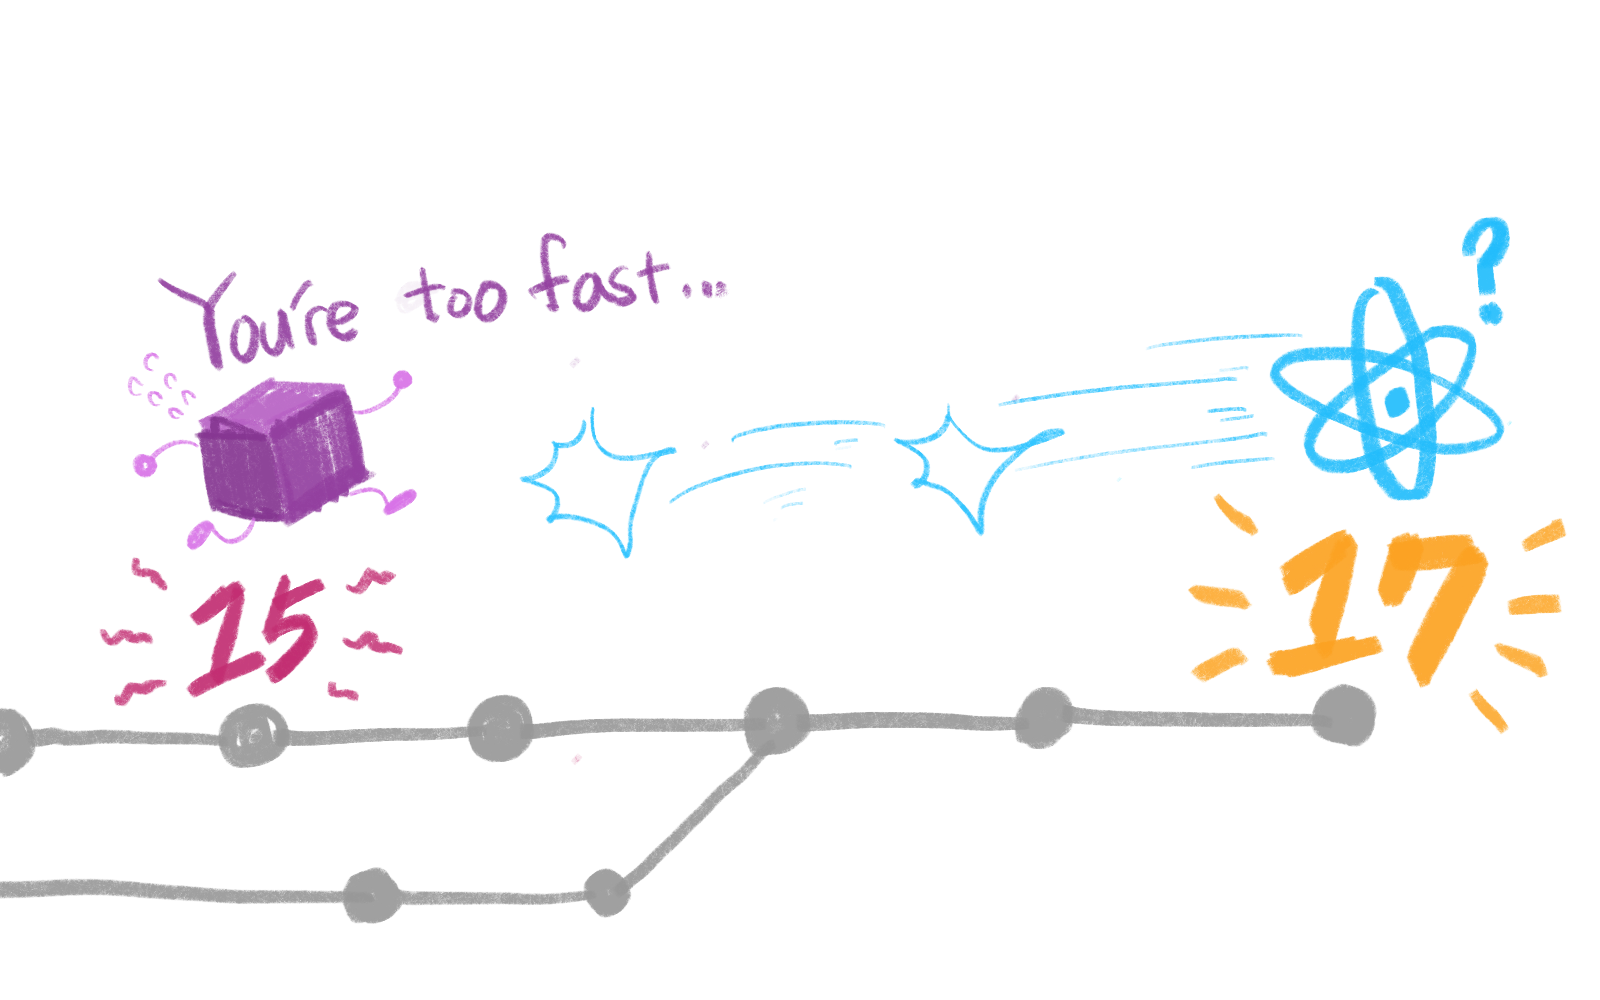 You're too fast...
?
15
17